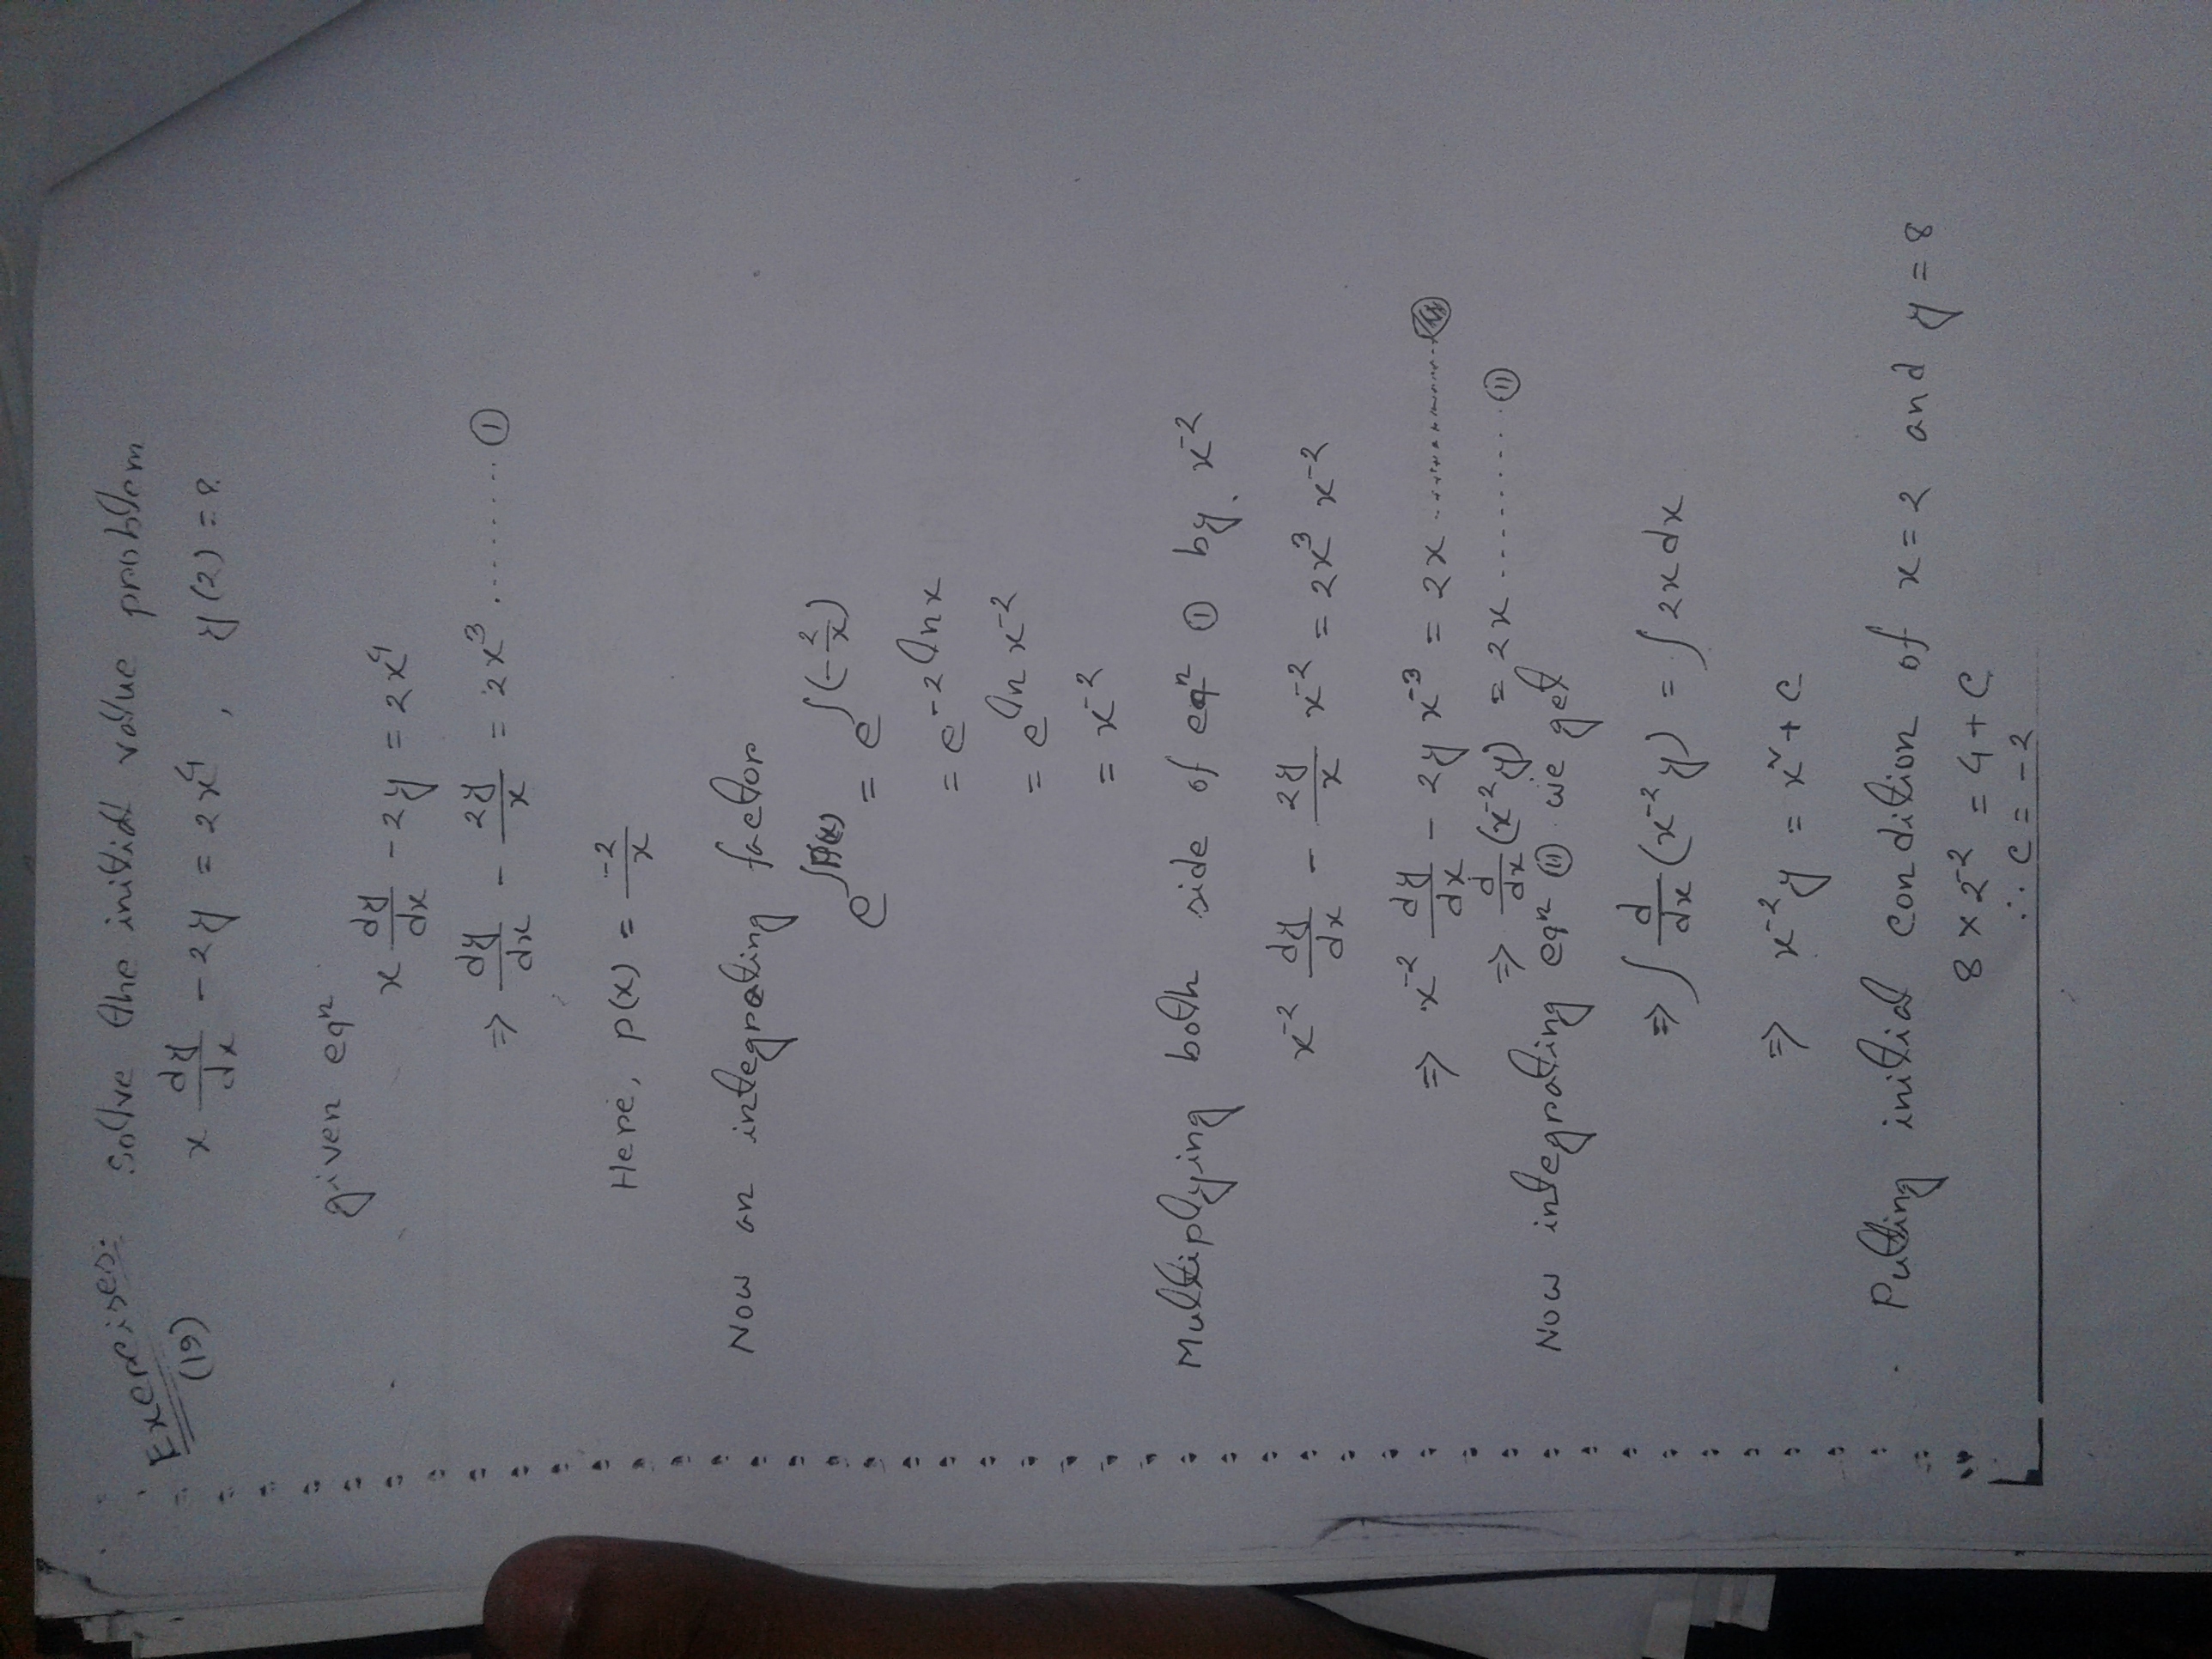 Exercises: Solve the initial value problem
(19) x dy/dx - 2y = 2x⁴ , y(2) = 8
given eqⁿ
x dy/dx - 2y = 2x⁴
⇒ dy/dx - 2y/x = 2x³ ........ ①
Here, p(x) = -2/x
Now an integrating factor
e^∫P(x) = e^∫(-2/x)
= e^-2 ln x
= e^ln x⁻²
= x⁻²
Multiplying both side of eqⁿ ① by x⁻²
x⁻² dy/dx - 2y/x x⁻² = 2x³ x⁻²
⇒ x⁻² dy/dx - 2y x⁻³ = 2x ............
⇒ d/dx (x⁻²y) = 2x .......... ⑪
Now integrating eqⁿ ⑪ we get
⇒ ∫ d/dx (x⁻²y) = ∫ 2x dx
⇒ x⁻²y = x² + c
Putting initial condition of x = 2 and y = 8
8 × 2⁻² = 4 + C
∴ c = -2